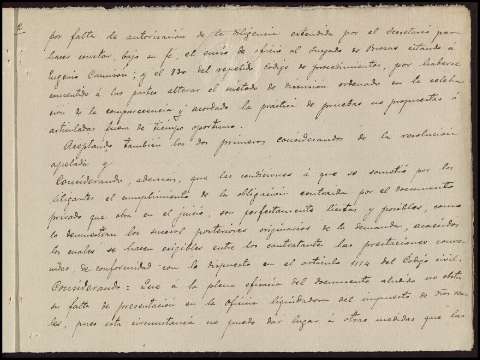 por falta de autorización de la diligencia extendida por el Secretario para
hacer constar, bajo su fe, el envío de oficio al Juzgado de citando á
Eugenio y el 730 del repetido Código de procedimientos, por haberse
á las partes alterar el método de discusión ordenado en la celebra
cion de la comparecencia y acordado la práctica de pruebas no propuestas ó
articuladas fuera de tiempo oportuno.
Aceptando tambien los dos primeros considerandos de la resolucion
apelada y
Considerando, además, que las condiciones á que se sometió por los
litigantes el cumplimiento de la obligación contraida por el documento
privado que obra en el juicio, son perfectamente lícitas y posibles, como
lo demuestran los sucesos posteriores originarios de la demanda, acaecidos
los cuales se hacen exigibles entre los contratantes las prestaciones conve
nidas, de conformidad con lo dispuesto en el artículo 1114 del Código civil.
Considerando: Que á la plena eficacia del documento aludido no obsta
su falta de presentación en la Oficina liquidadora del impuesto de Dros rea
les, pues esta circunstancia no puede dar lugar á otras medidas que las